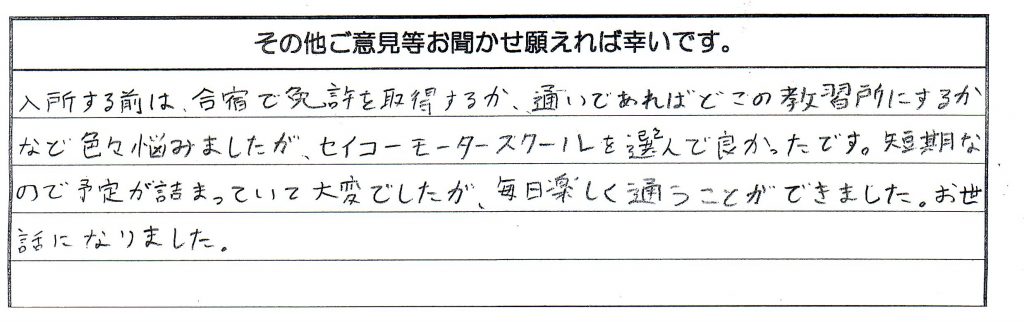 その他ご意見等お聞かせ願えれば幸いです。
入所する前は、合宿で免許を取得するか、通いであればどこの教習所にするか
など色々悩みましたが、セイコーモータースクールを選んで良かったです。短期な
ので予定が詰まっていて大変でしたが、毎日楽しく通うことができました。お世
話になりました。